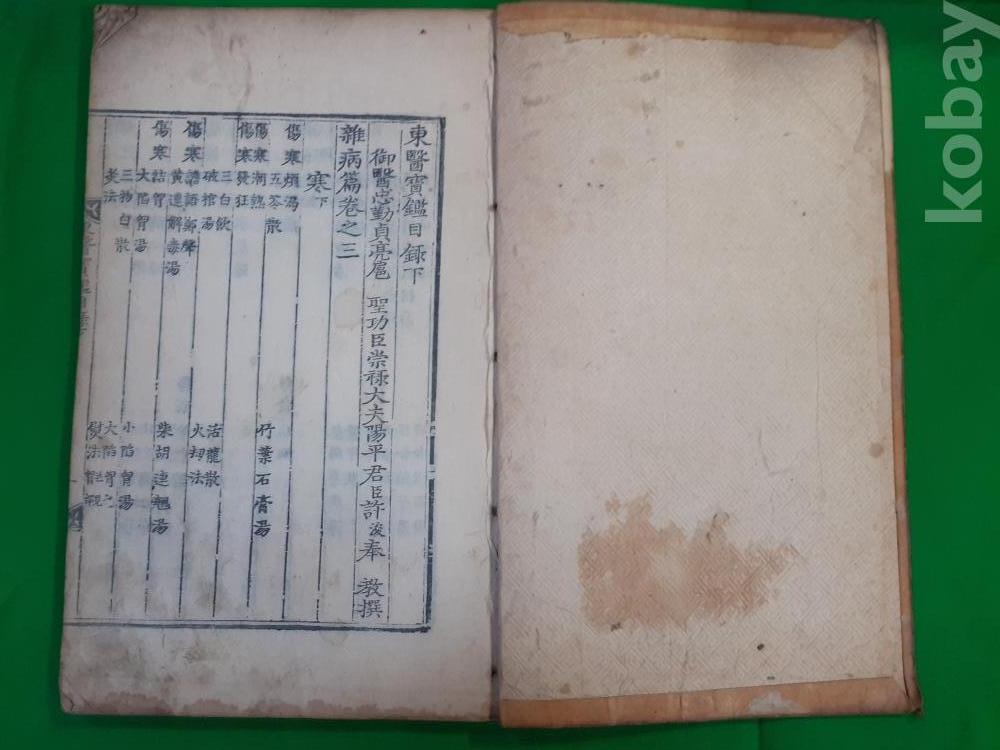 東醫寶鑑目錄下
御醫忠勤貞亮扈 聖功臣崇祿大夫陽平君臣許浚奉 敎撰
雜病篇卷之三
寒下
傷寒煩渴
五苓散 竹葉石膏湯
傷寒潮熱
傷寒發狂
三白飮 活龍散
破棺湯 火刼法
傷寒譫語鄭聲
黃連解毒湯 柴胡連翹湯
傷寒結胷
大陷胷湯 小陷胷湯
三物白散 大陷胷
炙法 熨法
kobay